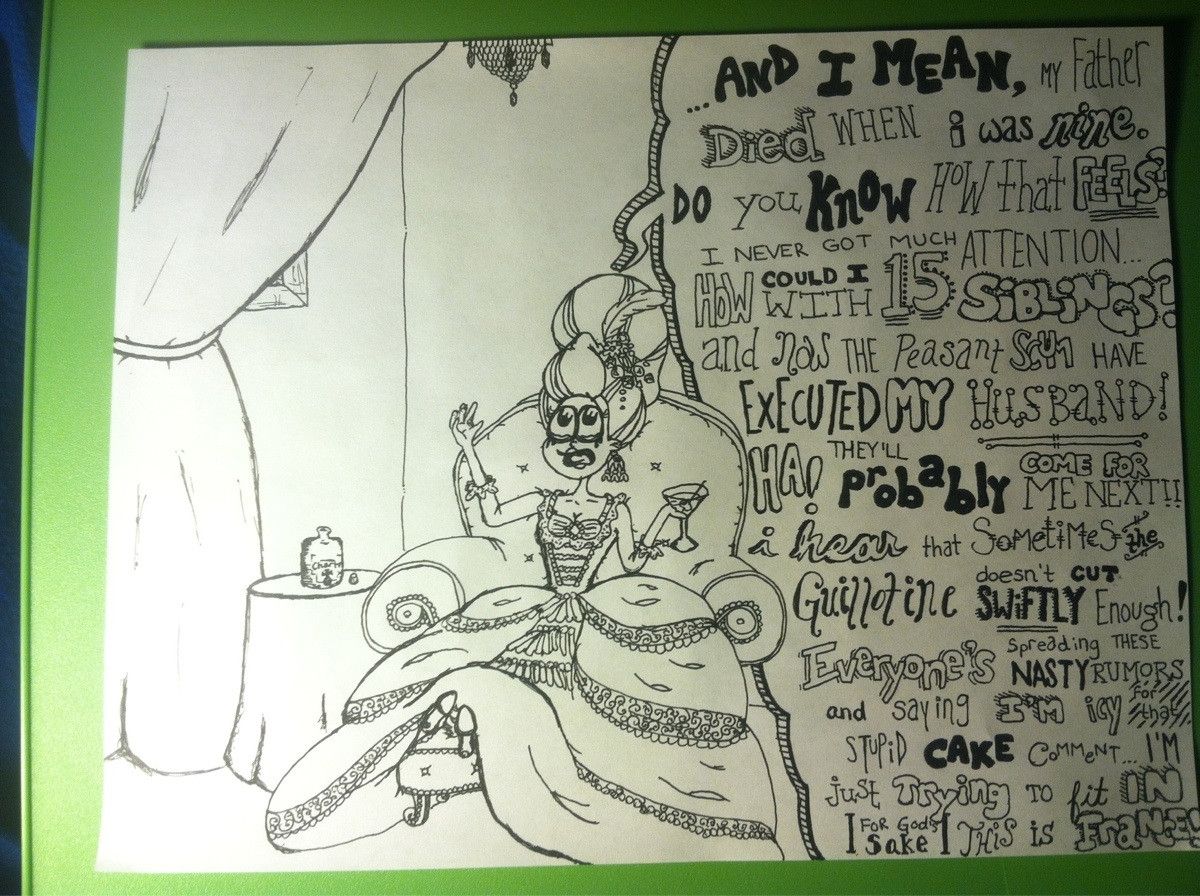 ...AND I MEAN, MY Father
Died WHEN i was nine.
DO you KNOW HOW that FEELS?
I NEVER GOT MUCH ATTENTION...
HOW COULD I WITH 15 SiBLiNGS?
and now THE Peasant Scum HAVE
EXECUTED MY HUSBAND!
HA! THEY'LL probably COME FOR ME NEXT!!
i hear that SometiMES the
Guillotine doesn't CUT SWIFTLY Enough!
Everyone's spreading THESE NASTY RUMORS
and saying I'M icy for that
STUPiD CAKE COMMENT... I'M
just Trying TO fit IN
FOR GOD'S Sake! THis is FRANCE!